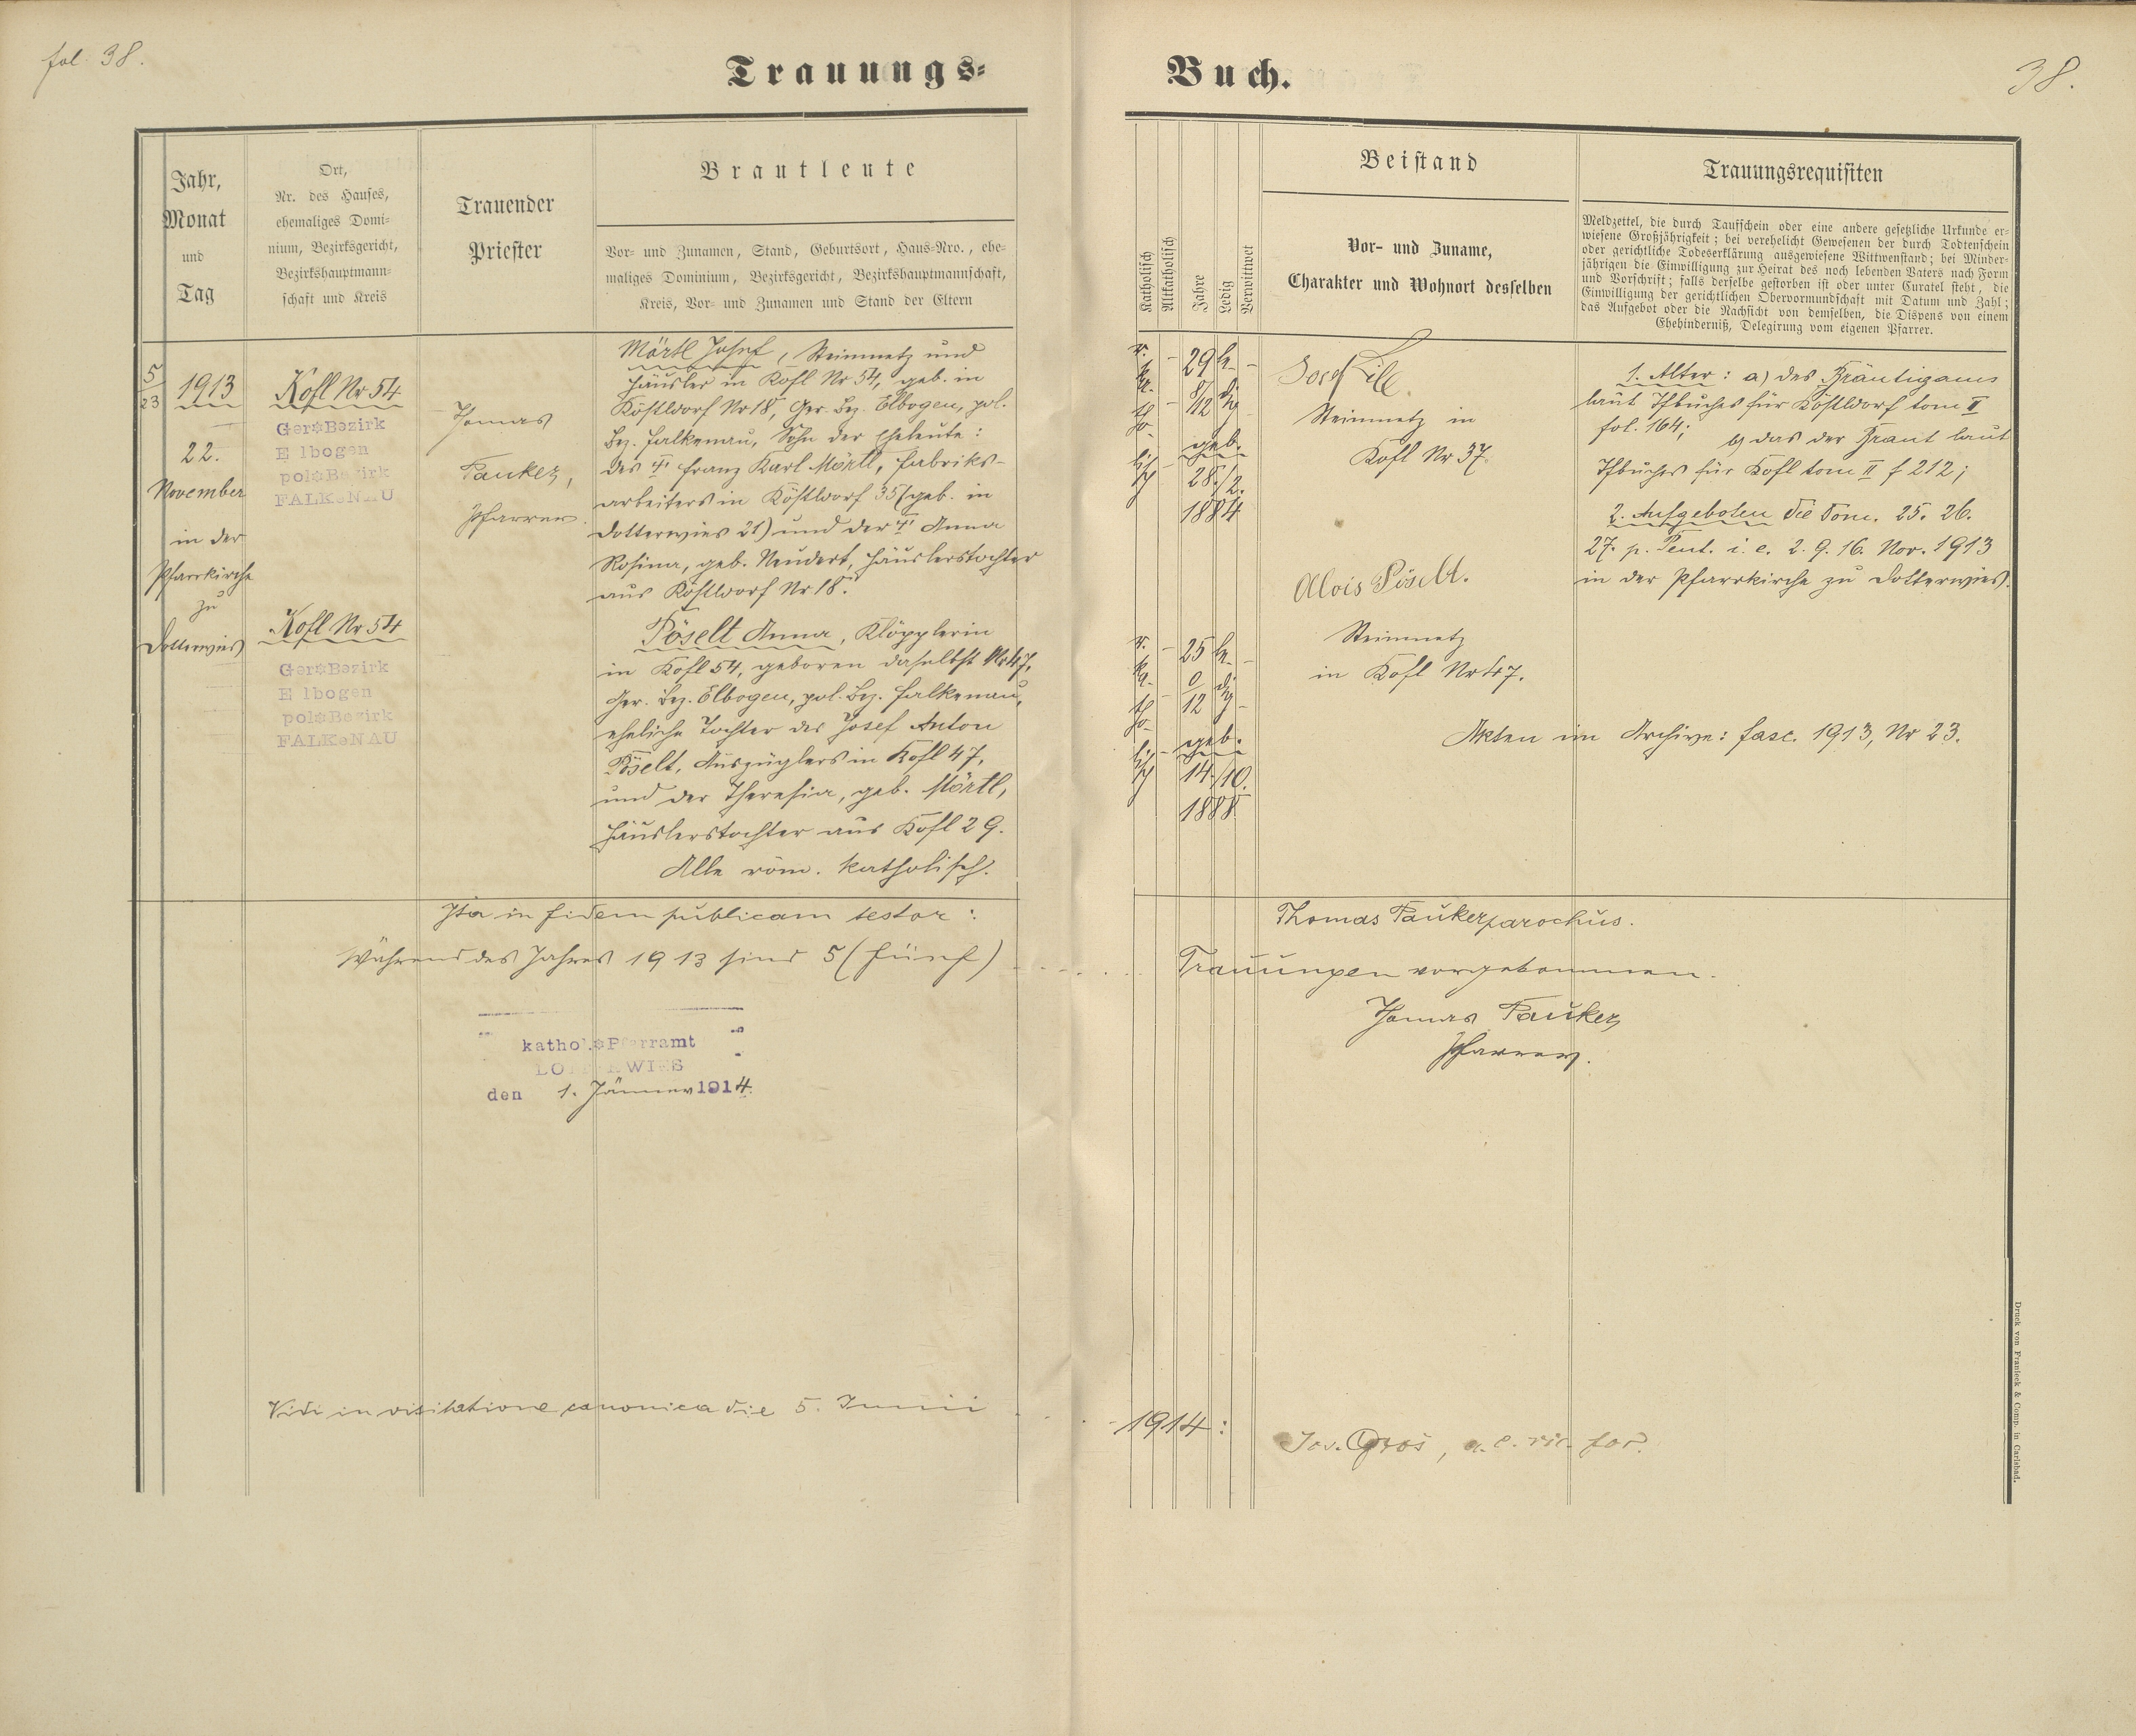 fol. 38.
Trauungs-
Buch.
38.
Jahr,
Monat
und
Tag
Ort,
Nr. des Hauses,
ehemaliges Domi-
nium, Bezirksgericht,
Bezirkshauptmann-
schaft und Kreis
Trauender
Priester
Brautleute
Vor- und Zunamen, Stand, Geburtsort, Haus-Nro., ehe-
maliges Dominium, Bezirksgericht, Bezirkshauptmannschaft,
Kreis, Vor- und Zunamen und Stand der Eltern
Katholisch
Altkatholisch
Jahre
Ledig
Verwittwet
Beistand
Vor- und Zuname,
Charakter und Wohnort desselben
Trauungsrequisiten
Meldzettel, die durch Taufschein oder eine andere gesetzliche Urkunde er-
wiesene Großjährigkeit; bei verehelicht Gewesenen der durch Todtenschein
oder gerichtliche Todeserklärung ausgewiesene Wittwenstand; bei Minder-
jährigen die Einwilligung zur Heirat des noch lebenden Vaters nach Form
und Vorschrift; falls derselbe gestorben ist oder unter Curatel steht, die
Einwilligung der gerichtlichen Obervormundschaft mit Datum und Zahl;
das Aufgebot oder die Nachsicht von demselben, die Dispens von einem
Ehehinderniß, Delegirung vom eigenen Pfarrer.
5
23
1913
22.
November
in der
Pfarrkirche
zu
Dotterwies
Kofl Nr 54
Ger*Bezirk
Elbogen
pol*Bezirk
FALKeNAU
Kofl Nr 54
Ger*Bezirk
Elbogen
pol*Bezirk
FALKeNAU
Thomas
Pauker,
Pfarrer.
Mörtl Josef, Steinmetz und
Häusler in Kofl Nr 54, geb. in
Köstldorf Nr 18, Ger. Bez. Elbogen, pol.
Bez. Falkenau, Sohn der Eheleute:
des † Franz Karl Mörtl, Fabriks-
arbeiters in Köstldorf 35 (geb. in
Dotterwies 21) und der † Anna
Rosina, geb. Neudert, Häuslerstochter
aus Köstldorf Nr 18.
Pöselt Anna, Klöpplerin
in Kofl 54, geboren daselbst Nr 47,
Ger. Bez. Elbogen, pol. Bez. Falkenau,
eheliche Tochter des Josef Anton
Pöselt, Auszüglers in Kofl 47,
und der Theresia, geb. Mörtl,
Häuslerstochter aus Kofl 29.
Alle röm. katholisch.
r.
ka-
tho-
lisch
29
8/12
geb.
28./2.
1884
le-
dig
r.
ka-
tho-
lisch
25
0
12
geb.
14./10.
1888
le-
dig
Josef Lill
Steinmetz in
Kofl Nr 37.
Alois Pöselt.
Steinmetz
in Kofl Nr 47.
1. Alter: a) des Bräutigams
laut Tfbuches für Köstldorf tom II
fol. 164; b) das der Braut laut
Tfbuches für Kofl tom II f 212;
2. Aufgeboten die Dom. 25. 26.
27. p. Pent. i. e. 2. 9. 16. Nov. 1913
in der Pfarrkirche zu Dotterwies.
Akten im Archive: fasc. 1913, Nr 23.
Ita in fidem publicam testor:
Thomas Pauker parochus.
Während des Jahres 1913 sind 5 (fünf)
Trauungen vorgekommen.
Thomas Pauker
Pfarrer.
kathol.*Pfarramt
den 1. Jänner 1914.
Vidi in visitatione canonica die 5. Junii
1914:
Jos. Gros, a. e. vic. for.
Druck von Franieck & Comp. in Carlsbad.